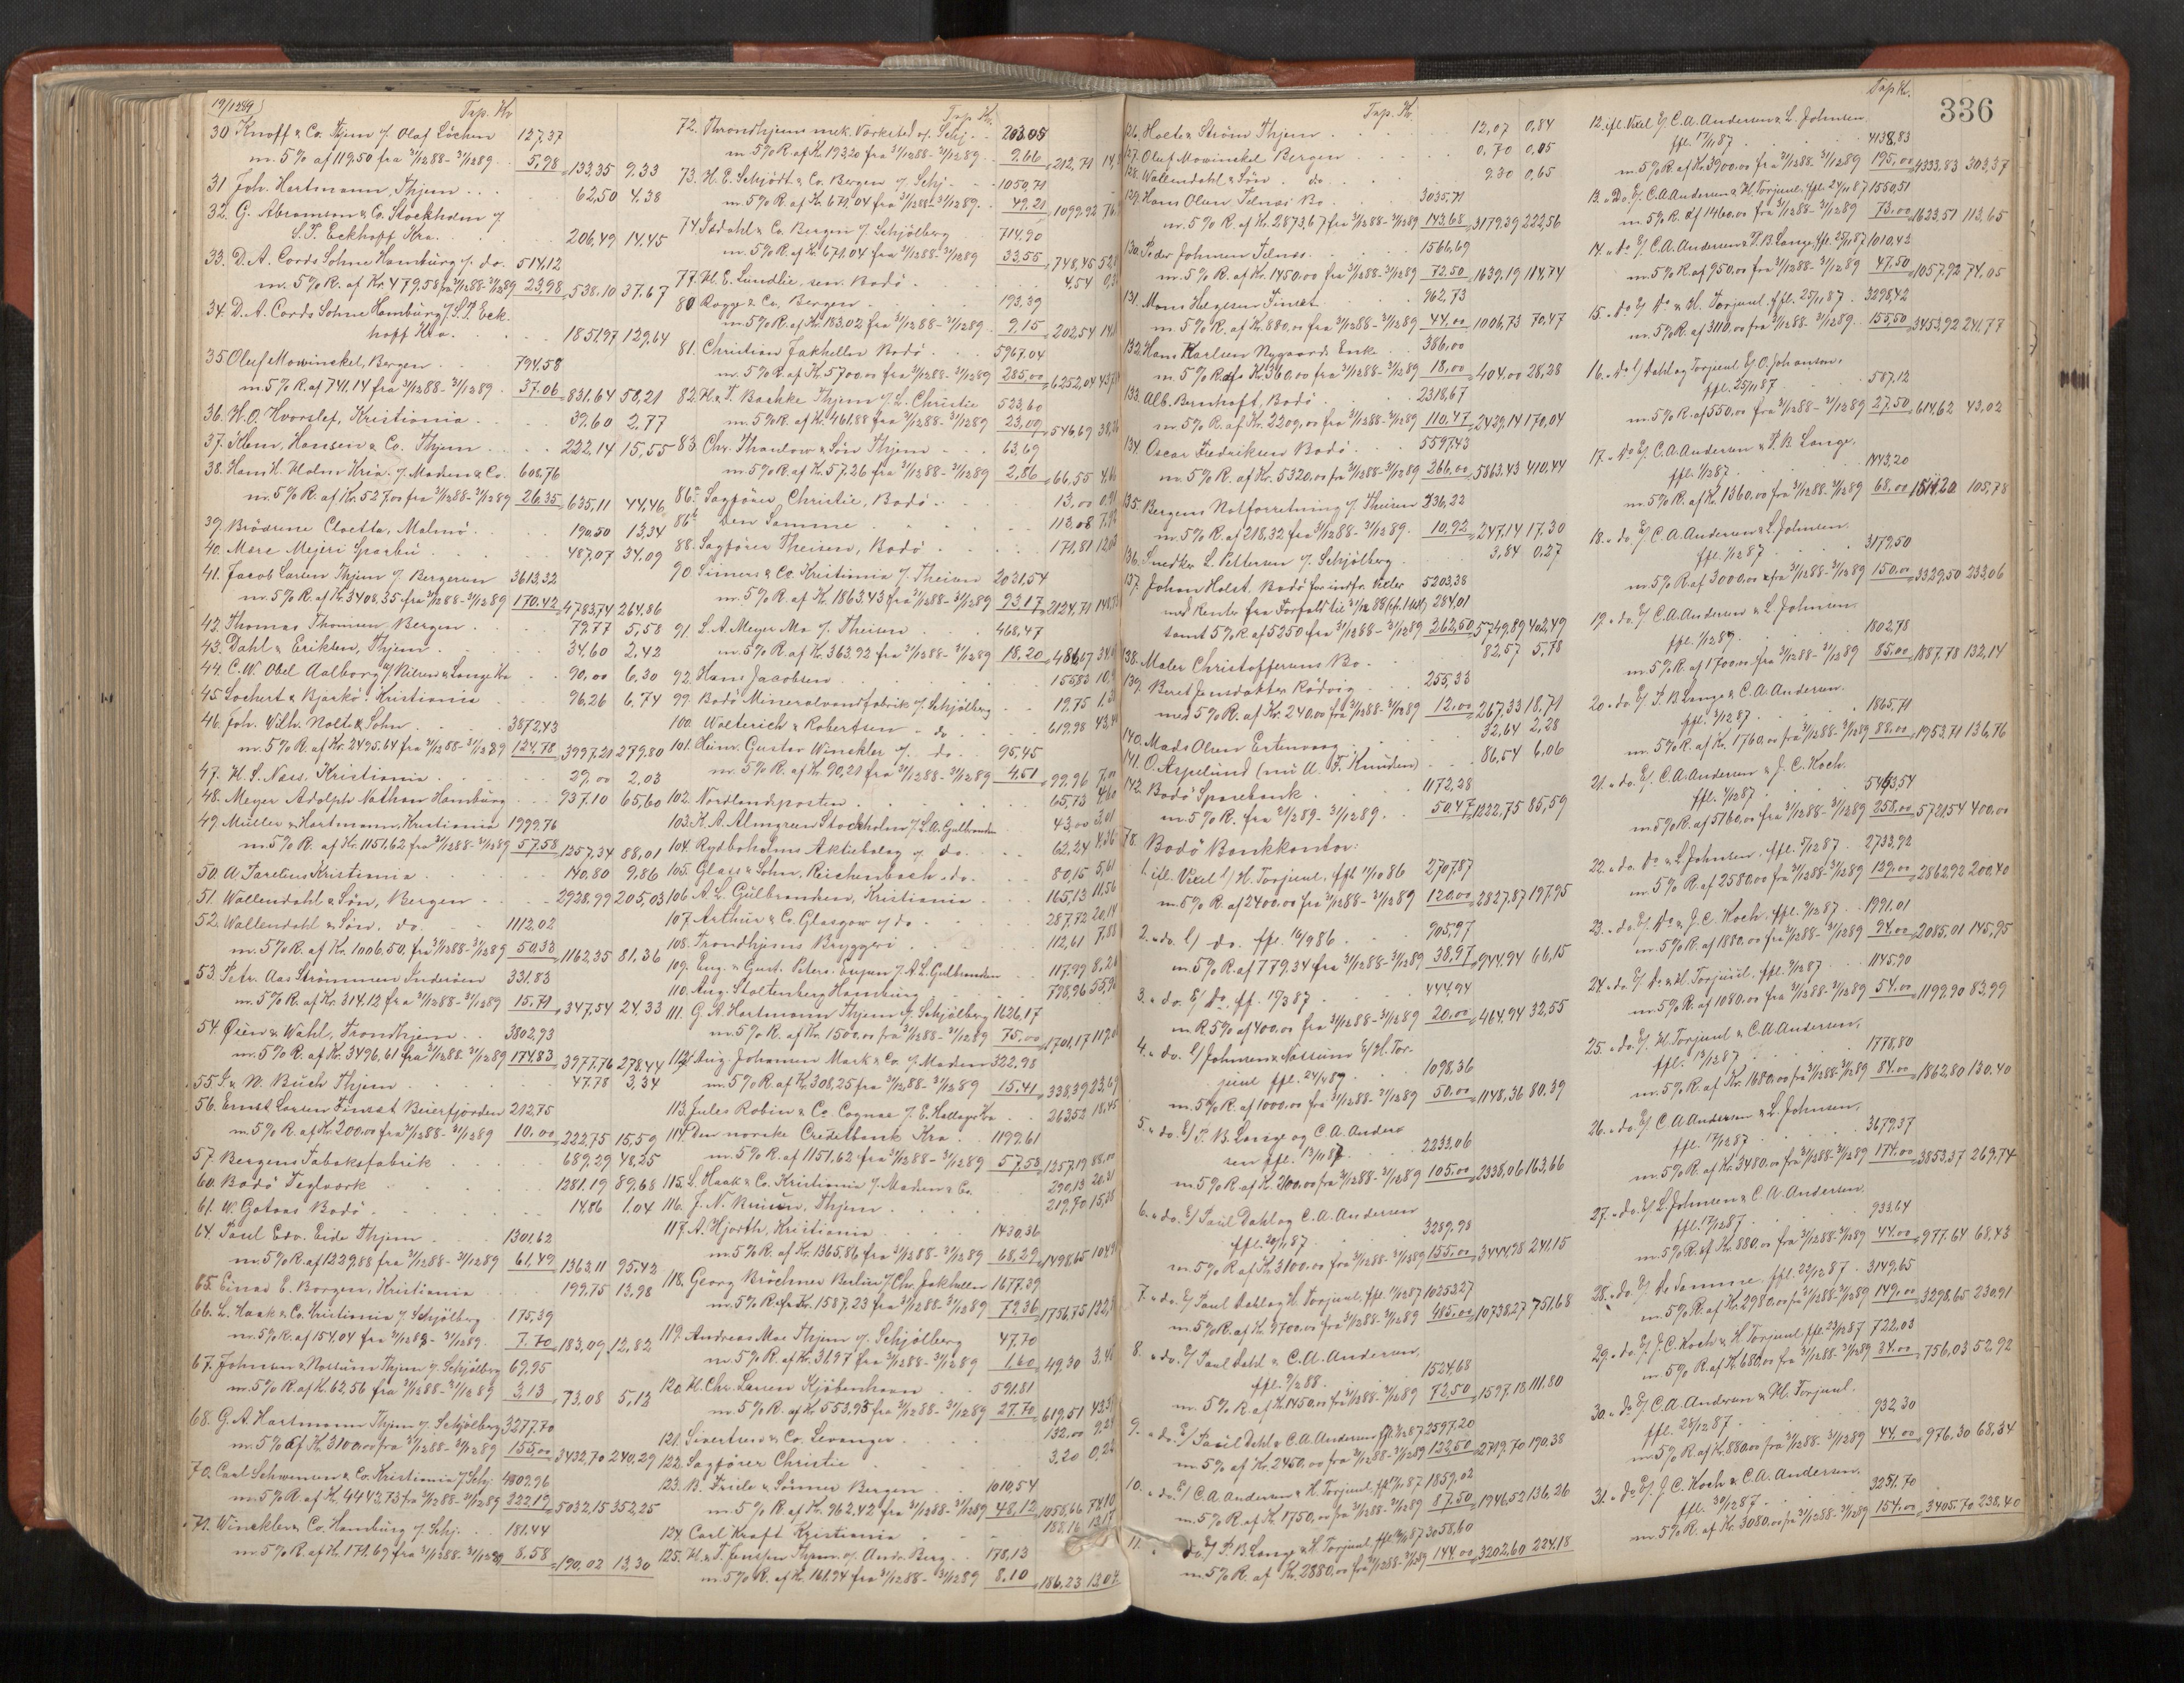 19/1289
Tap. Kr
30 Knoff & Co. Thjem v/ Olaf Löchen 127,37
m. 5% af 119,50 fra 31/1288 - 31/1289 5,98 133,35 9.33
31 Joh. Hartmann, Thjem 62,50 4.38
32. G. Abramson & Co. Stockholm v/
S. T. Eckhoff Kra. 206,49 14.45
33. D. A. Cords Sohne Hamburg v/ do. 514,12
m. 5% R. af Kr. 479,58 fra 31/1288-31/1289 23,98 538.10 37.67
34. D. A. Cords Sohne Hamburg v/ S. T. Eck-
hoff Kra. 1851,97 129,64
35 Oluf Mowinckel, Bergen 794,58
m. 5% R. af 741.14 fra 31/1288 - 31/1289 37.06 831,64 58,21
36. H. O. Hvorslef, Kristiania 39.60 2,77
37. Klem, Hansen & Co. Thjem 222,14 15,55
38. Hans H. Holm Kria. v/ Madsen & Co. 608,76
m. 5% R. af Kr. 527,00 fra 31/1288 - 31/1289 26.35 635,11 44,46
39. Brödrene Cloetta, Malmö 190,50 13,34
40. Mære Mejeri Sparbu 487,07 34,09
41. Jacob Larsen Thjem v/ Bergersen 3613,32
m. 5% R. af Kr. 3408,35 fra 31/1288 - 31/1289 170,42 3783,74 264,86
42. Thomas Thomsen Bergen 79,77 5,58
43. Dahl & Eriksen, Thjem 34.60 2,42
44. C. W. Obel Aalborg v/ Nilsen & Lange Kra 90,00 6,30
45. Lochert & Bjarkö. Kristiania 96.26 6,74
46. Joh. Wilh. Nolte & Sohn 3872,43
m. 5% R. af Kr. 2495,64 fra 31/1288 - 31/1289 124,78 3997,21 279,80
47. H. S. Næss, Kristiania 29,00 2,03
48. Meyer Adolph Nathan Hamburg 937.10 65,60
49. Müller & Hartmann, Kristiania 1999,76
m. 5% R. af Kr. 1151,62 fra 31/1288 - 31/1289 57,58 1257,34 88,01
50. A. Faretius Kristiania 140,80 9,86
51. Wallendahl & Sön, Bergen 2928,99 205,03
52. Wallendahl & Sön, do. 1112,02
m. 5% R. af Kr. 1006,50, fra 31/1288 - 31/1289 50,33 1162,35 81,36
53. Petr. Aas Strömmen Inderöen 331.83
m. 5% R. af Kr. 314.12 fra 31/1288 - 31/1289 15,71 347,54 24.33
54. Öien & Wahl, Trondhjem 3802,93
m. 5% R. af Kr. 3496,61 fra 31/1288 - 31/1289 174,83 3977,76 278,44
55. F. & W. Buch Thjem 47.78 3,34
56. Ernst Larsen Finset Beierfjorden 212,75
m. 5% R. af Kr. 200,00 fra 31/1288 - 31/1289 10,00 222,75 15,59
57. Bergens Tabaksfabrik 689,29 48,25
60. Bodö Teglværk 1281.19 89,68
61. W. Gotaas Bodö 14,86 1.04
64. Paul Edv. Eide Thjem 1301,62
m. 5% R. af 1229,88 fra 31/1288 - 31/1289 61,49 1363,11 95,42
65. Einar E. Borgen, Kristiania 199,75 13,98
66. L. Haak & Co. Kristiania v/ Schjölberg 175,39
m. 5% R. af 154.04 fra 31/1288 - 31/1289 7.70 183,09 12,82
67. Johnsen & Nossum Thjem v/ Schjölberg 69,95
m. 5% R. af Kr. 62,56 fra 31/1288 - 31/1289 3,13 73,08 5,12
68. G. A. Hartmann Thjem v/ Schjölberg 3277,70
m. 5% af Kr. 3100,00 fra 31/1288 - 31/1289 155,00 3432,70 240,29
70. Carl Schwensen & Co. Kristiania v/ Schj. 4809,96
m. 5% R. af Kr. 4443,73 fra 31/1288 - 31/1289 222,19 5032,15 352,25
71. Winckler & Co. Hamburg v/ Schj. 181.44
m. 5% R. af Kr. 171,69 fra 31/1288 - 31/1289 8.58 190,02 13,30
Tap. Kr.
72. Throndhjems mek. Værksted v/ Schj. 203.05
m. 5% R. af Kr. 193,20 fra 31/1288 - 31/1289 9.66 212,71
73. H. E. Schjödt & Co. Bergen v/ Schj. 1050,71
m. 5% R. af Kr. 671,04 fra 31/1288 - 31/1289 49,21 1099,92
74. Isdahl & Co. Bergen v/ Schjölberg 714.90
m. 5% R. af Kr. 671,04 fra 31/1288 - 31/1289 33,55 748,45
77. H. E. Lundlie, sen. Bodö 4.54
80 Rogge & Co, Bergen 193,39
m. 5% R. af Kr. 183.02 fra 31/1288 - 31/1289 9,15 202,54
81. Christian Jakhelln Bodö 5967.04
m. 5% R. af Kr. 5700,00 fra 31/1288 - 31/1289 285,00 6252,04
82. H. & F. Bachke Thjem v/ L. Christie 523,60
m. 5% R. af Kr. 461,88 fra 31/1288 - 31/1289 23,09 546,69
83. Chr. Thaulow & Sön Thjem 63,69
m. 5% R. af Kr. 57,26 fra 31/1288 - 31/1289 2,86 66,55
86a Sagförer Christie, Bodö 13,00
86b Den Samme 113.08
88. Sagförer Theisen, Bodö 171,81
90. Simers & Co. Kristiania v/ Theisen 2031,54
m. 5% R. af Kr. 1863,43 fra 31/1288 - 31/1289 93,17 2124,71
91. L. A. Meyer Mo v/ Theisen 468,47
m. 5% R. af Kr. 363.92 fra 31/1288 - 31/1289 18,20 486,67
92. Hans Jacobsen 155,83
99. Bodö Mineralvandfabrik v/ Schjölberg 19,75
100. Walterich & Robertsen - do. 619,98
101. Heinr. Gustav Winckler v/ do. 95,45
m. 5% R. af Kr. 90,21 fra 31/1288 - 31/1289 4,51 99.96
102. Nordlandsposten 65,73
103. K. A. Almgren Stockholm v/ L. A. Gulbrandsen 43,00 3,01
104. Rydboholms Aktiebolag v/ do. 62,24
105. Glass & Sohn, Reichenbach - do. 80,15 5,61
106. A. L. Gulbrandsen, Kristiania 165,13 11,56
107. Arthur & Co. Glasgow v/ do 287,72 20,14
108. Trondhjems Bryggeri 112,61 7,88
109. Eug. & Gust. Peters. Eupen v/ A L. Gulbrandsen 117,99
110. Aug. Stoltenberg Hamburg 798,96
111. G. A. Hartmann Thjem v/ Schjölberg 1626,17
m. 5% R. af Kr. 1500,00 fra 31/1288 - 31/1289 75,00 1701,17
112. Aug. Johansen Mark & Co. v/ Madsen 322.98
m. 5% R. af Kr. 308,25 fra 31/1288 - 31/1289 15.41 338,39 23,69
113. Jules Robin & Co. Cognac v/ E. Hallager Kra 263,52 18,45
114. Den norske Creditbank Kra 1199,61
m. 5% R. af 1151,62 fra 31/1288 - 31/1289 57,58 1257,19 88,00
115. L. Haak & Co. Kristiania v/ Madsen & Co. 290,13 20,31
116. J. N. Bruun, Thjem 219,70
117. A. Hjorth, Kristiania 1430,36
m. 5% R. af Kr. 1365,86 fra 31/1288 - 31/1289 68,29 1498,65
118. Georg Bröchner Berlin v/ Chr. Jakhelln 1677.39
m. 5% R. af Kr. 1587,23 fra 31/1288 - 31/1289 79.36 1756,75
119. Andreas Moe Thjem v/ Schjölberg 47,70
m. 5% R. af Kr. 31,97 fra 31/1288 - 31/1289 1,60 49,30
120. H. Chr. Larsen Kjöbenhavn 591.81
m. 5% R. af Kr. 553,93 fra 31/1288 - 31/1289 27.70 619,51
121. Sivertsen & Co. Levanger 132,00
122. Sagförer Christie 3,20
123. B. Friele & Sönner Bergen 1010,54
m. 5% R. af Kr. 962.42 fra 31/1288 - 31/1289 48,12 1058,66
124. Carl Kraft Kristiania 188,16 13,17
125. H. & F. Jenssen Thjem v/ Andr. Berg 178,13
m. 5% R. af Kr. 161,94 fra 31/1288 - 31/1289 8.10 186,23 13,04
Tap. Kr.
126. Holte & Ström Thjem 12,07 0,84
127. Oluf Mowinckel Bergen 0,70 0,05
128. Wallendahl & Sön do. 9.30 0,65
129. Hans Olsen Felnes Bo 3035,71
m. 5% R. af Kr. 2873,67 fra 31/1288 - 31/1289 143,68 3179,39 222,56
130. Peder Johnsen Felnes 1566,69
m. 5% R. af Kr. 1450,00 fra 31/1288 - 31/1289 72,50 1639,19 114,74
131. Mons Helgesen Finset 962,73
m. 5% R. af Kr. 880,00 fra 31/1288 - 31/1289 44,00 1006,73 70,47
132. Hans Karlsen Nygaards Enke 386,00
m. 5% R. af Kr. 360,00 fra 31/1288 - 31/1289 18,00 404,00 28,28
133. Alb. Bernhoft, Bodö 2318,67
m. 5% R. af Kr. 2209,00 fra 31/1288 - 31/1289 110,47 2429,14 170,04
134. Oscar Fredriksen Bodö 5597,43
m. 5% R. af Kr. 5320,00 fra 31/1288 - 31/1289 266,00 5863,43 410,44
135. Bergens Notforretning v/ Theisen 236,22
m. 5% R. af 218,32 fra 31/1288 - 31/1289 10,92 247,14 17,30
136. Snedker L. Pettersen v/ Schjölberg 3,84 0,27
137. Johan Holst. Bodö for indfr. Vexler 5203,38
med Renter fra Forfald til 31/12 88 284,01
samt 5% R. af 5250 fra 31/1288 - 31/1289 262,50 5749,89 402,49
138. Maler Christoffersens Bo 82,57 5,78
139. Beret Jensdatter Rödvig 255,33
med 5% R. af Kr. 240,00 fra 31/1288 - 31/1289 12,00 267,33 18,71
140. Mads Olsen Ertenvaag 32,64 2,28
141. O. Aspelund (nu A. F. Knudsen) 86,54 6,06
142. Bodö Sparebank 1172,28
m. 5% R. fra 21/289 - 31/1289 50,47 1222,75 85,59
78. Bodö Bankkontor:
1. ifl. Vexel E/ H. Torjuul, ffl 11/1086 2707,87
m. 5% R. af 2400,00 fra 31/1288 - 31/1289 120,00 2827,87 197,95
2. " do. E/ do. ffl. 16/986 905,97
m. 5% R. af 779,34 fra 31/1288 - 31/1289 38,97 944,94 66,15
3. " do. E/ Do. ff. 17/387 444,94
m. R. 5% af 400,00 fra 31/1288 - 31/1289 20,00 464,94 32,55
4. " do. E/ Johnsen & Nossum E/ H. Tor-
juul ffl. 24/487 1098,36
m. 5% R. af 1000,00 fra 31/1288 - 31/1289 50,00 1148,36 80,39
5. " do. E/ P. B. Lange og C. A. Ander-
sen ffl. 13/1187 2233,06
m. 5% R. af Kr. 2100,00 fra 31/1288 - 31/1289 105,00 2338,06 163,66
6. " do. E/ Paul Dahl og C. A. Andersen
ffl. 20/1187 3289,98
m. 5% R. af Kr. 3100,00 fra 31/1288 - 31/1289 155,00 3444,98 241,15
7. " do. E/ Paul Dahl og H. Torjuul, ffl. 1/1287 10253,27
m. 5% R. af Kr. 9700,00 fra 31/1288 - 31/1289 485,00 10738,27 751,68
8. " do. E/ Paul Dahl & C. A. Andersen,
ffl. 9/288 1524,68
m. 5% R. af Kr. 1450,00 fr. 31/1288 - 31/1289 72,50 1597.18 111.80
9. " do. E/ Paul Dahl & C. A. Andersen ffl. 3/1287 2597.20
m. 5% af Kr. 2450,00 fra 31/1288 - 31/1289 122,50 2719,70 190,38
10. " do. E/ C. A. Andersen & H. Torjuul, ffl 17/1187 1859,02
m. 5% R. af Kr. 1750,00 fra 31/1288 - 31/1289 87.50 1946,52 136,26
11. " do. E/ P. B. Lange & H. Torjuul, ffl 19/1187 3058,60
m. 5% R. af Kr. 2880,00 fra 31/1288 - 31/1289 144,00 3202,60 224.18
336
Tap Kr.
12. ifl. Vexel E/ C. A. Andersen & L. Johnsen
ffl. 17/1187 4138,83
m. 5% R. af Kr. 3900,00 fra 31/1288 - 31/1289 195,00 4333,83 303,37
13. " Do. E/ C. A. Andersen & H. Torjuul, ffl. 24/1187 1550,51
m. 5% R. af 1460,00 fra 31/1288 - 31/1289 73,00 1623,51 113,65
14. " do E/ C. A. Andersen & P. B. Lange, ffl. 25/1187 1010,42
m. 5% R. af 950,00 fra 31/1288 - 31/1289 47,50 1057,92 74.05
15. " do E/ Do & H. Torjuul, ffl. 25/1187 3298,42
m. 5% R. af 3110,00 fra 31/1288 - 31/1289 155,50 3453,92 241,77
16. " do E/ Dahl og Torjuul E/ O. Johansen,
ffl. 25/1187 587,12
m. 5% R. af 550,00 fra 31/1288 - 31/1289 27,50 614,62 43,02
17. " do E/ C. A. Andersen & P. B. Lange,
ffl. 1/1287 1443,20
m. 5% R. af Kr. 1360,00 fra 31/1288 - 31/1289 68,00 1511,20 105,78
18. " do. E/ C. A. Andersen & L. Johnsen.
ffl. 1/1287 3179,50
m. 5% R. af 3000,00 fra 31/1288 - 31/1289 150,00 3329,50 233,06
19. " do. E/ C. A. Andersen & L. Johnsen
ffl. 1/1287 1802,78
m. 5% R. af 1700,00 fra 31/1288 - 31/1289 85,00 1887,78 132,14
20. " do. E/ P. B. Lange & C. A. Andersen
ffl. 2/1287 1865,71
m. 5% R. af Kr. 1760,00 fra 31/1288 - 31/1289 88,00 1953,71 136,76
21. " do. E/. C. A. Andersen & J. C. Koch.
ffl. 4/1287 5463,54
m. 5% R. af 5160,00 fra 31/1288 - 31/1289 258,00 5721,54 400,00
22. " do. Do & L. Johnsen, ffl. 5/1287 2733,92
m. 5% R. af 2580,00 fra 31/1288 - 31/1289 129,00 2862,92 200,40
23. " do. E/. Do & J. C. Koch, ffl. 9/1287 1991,01
m. 5% R. af 1880,00 fra 31/1288 - 31/1289 94,00 2085,01 145,95
24. " do E/ Do & H. Torjuul, ffl. 9/1287 1145,90
m. 5% R. af 1080,00 fra 31/1288 - 31/1289 54,00 1199,90 83,99
25. " do. E/. H. Torjuul & C. A. Andersen,
ffl. 13/1287 1778,80
m. 5% R. af Kr. 1680,00 fra 31/1288 - 31/1289 84,00 1862,80 130,40
26. " do. E/ C. A. Andersen & L. Johnsen,
ffl. 17/1287 3679,37
m. 5% R. af Kr. 3480,00 fra 31/1288 - 31/1289 174,00 3853,37 269,74
27. " do. E/ L. Johnsen & C. A. Andersen.
ffl. 17/1287 933,64
m. 5% R. af Kr. 880,00 fra 31/1288 - 31/1289 44,00 977,64 68,43
28. " do. E/ de Samme, ffl. 22/1287 3149,65
m. 5% R. af Kr. 2980,00 fra 31/1288 - 31/1289 149,00 3298,65 230,91
29. " do E/ J. C. Koch & H. Torjuul ffl. 23/1287 722,03
m. 5% R. af Kr. 680,00 fra 31/1288 - 31/1289 34,00 756,03 52,92
30. " do E/ C. A. Andersen & H. Torjuul.
ffl. 28/1287 932,30
m. 5% R. af Kr. 880,00 fra 31/1288 - 31/1289 44,00 976,30 68,34
31. " do E/ J. C. Koch & C. A. Andersen,
ffl. 30/1287 3251.70
m. 5% R. af Kr. 3080,00 fra 31/1288 - 31/1289 154,00 3405,70 238,40